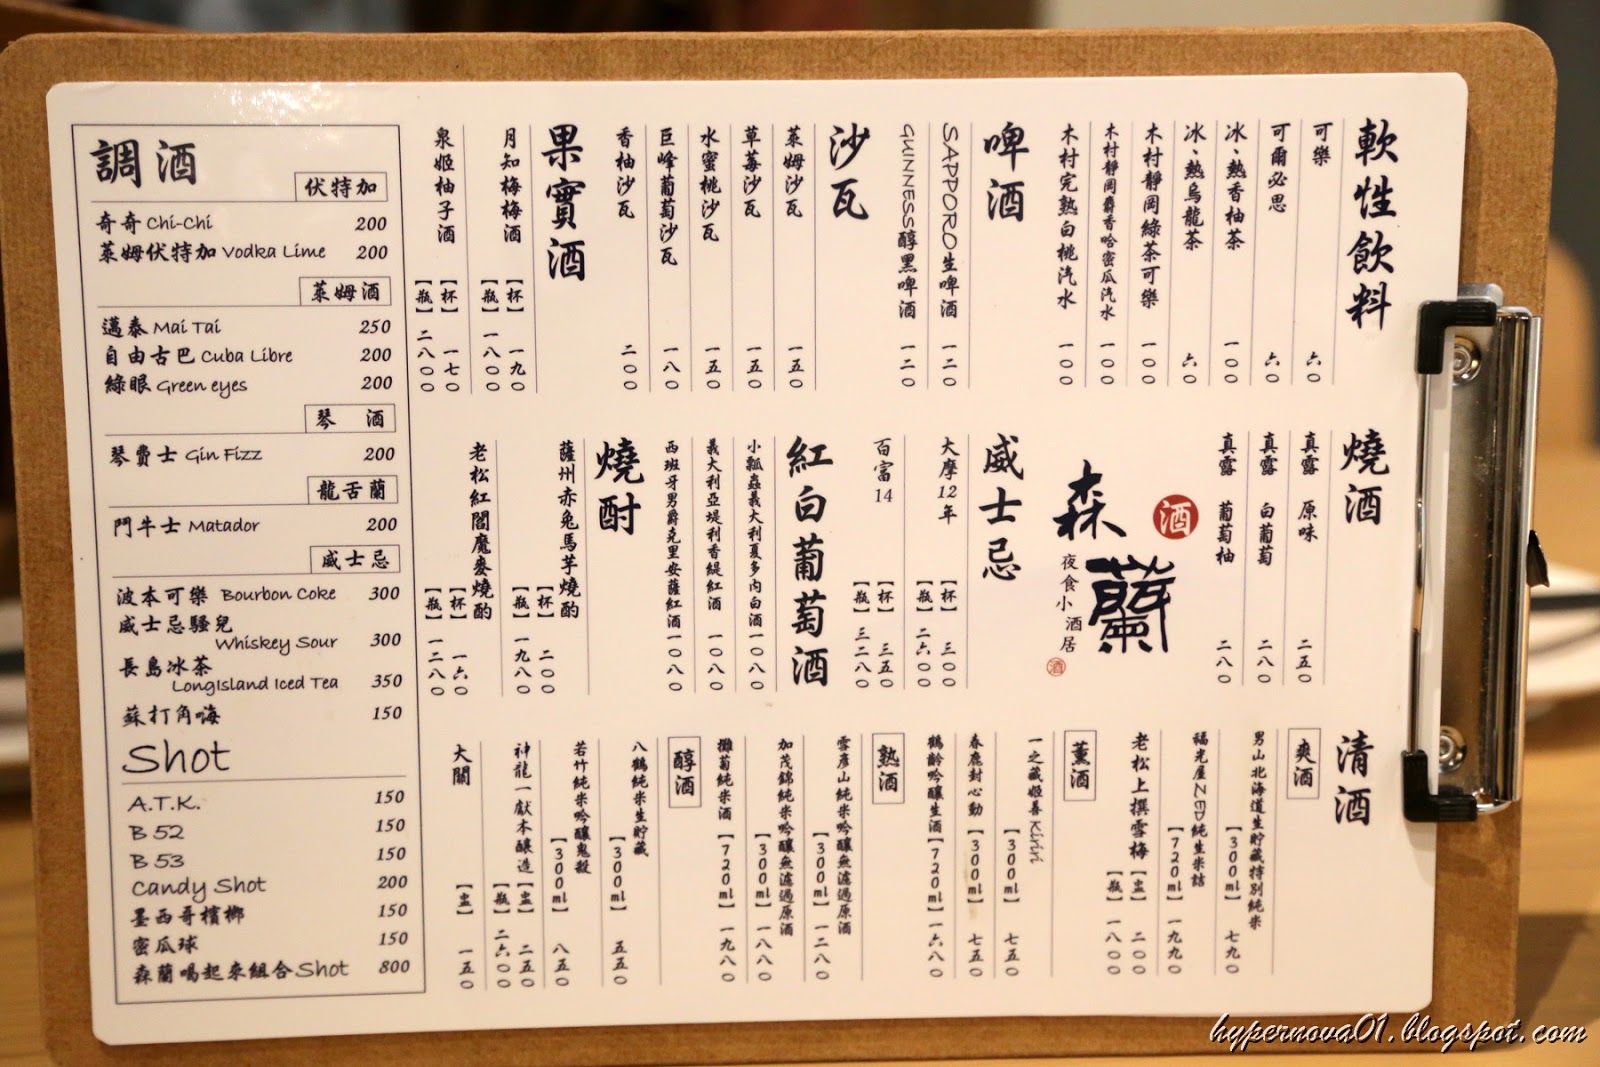 軟性飲料
可樂 六〇
可爾必思 六〇
冰、熱香柚茶 一〇〇
冰、熱烏龍茶 六〇
木村靜岡綠茶可樂 一〇〇
木村靜岡麝香哈密瓜汽水 一〇〇
木村完熟白桃汽水 一〇〇
啤酒
SAPPORO生啤酒 一二〇
GUINNESS醇黑啤酒 一二〇
沙瓦
萊姆沙瓦 一五〇
草莓沙瓦 一五〇
水蜜桃沙瓦 一五〇
巨峰葡萄沙瓦 一八〇
香柚沙瓦 二〇〇
果實酒
月知梅梅酒
【杯】 一九〇
【瓶】 一八〇〇
泉姬柚子酒
【杯】 一七〇
【瓶】 二八〇〇
燒酒
真露 原味 二五〇
真露 白葡萄 二八〇
真露 葡萄柚 二八〇
酒
森蘭
夜食小酒居
酒
威士忌
大摩12年
【杯】 三〇〇
【瓶】 二六〇〇
百富14
【杯】 三五〇
【瓶】 三二八〇
紅白葡萄酒
小瓢蟲義大利夏多內白酒 一〇八〇
義大利亞堤利香緹紅酒 一〇八〇
西班牙男爵克里安薩紅酒 一〇八〇
燒酎
薩州赤兔馬芋燒酌
【杯】 二〇〇
【瓶】 一九八〇
老松紅閻魔麥燒酌
【杯】 一六〇
【瓶】 一二八〇
清酒
爽酒
男山北海道生貯藏特別純米
【300ml】 七九〇
福光屋ZED純生米詰
【720ml】 一九九〇
老松上撰雪梅
【盅】 二〇〇
【瓶】 一八〇〇
薰酒
一之藏姬善Kirin
【300ml】 七五〇
春鹿封心動 【300ml】 七五〇
鶴齡吟釀生酒 【720ml】 一六八〇
熟酒
雪彥山純米吟釀無濾過原酒
【300ml】 一二八〇
加茂錦純米吟釀無濾過原酒
【300ml】 一八八〇
攤菊純米酒 【720ml】 一九八〇
醇酒
八鶴純米生貯藏
【300ml】 五五〇
若竹純米吟釀鬼殺
【300ml】 八五〇
神龍一獻本釀造 【盅】 二五〇
【瓶】 二六〇〇
大關 【盅】 一五〇
調酒
伏特加
奇奇 Chi-Chi 200
萊姆伏特加 Vodka Lime 200
萊姆酒
邁泰 Mai Tai 250
自由古巴 Cuba Libre 200
綠眼 Green eyes 200
琴酒
琴費士 Gin Fizz 200
龍舌蘭
鬥牛士 Matador 200
威士忌
波本可樂 Bourbon Coke 300
威士忌騷兒
Whiskey Sour 300
長島冰茶
LongIsland Iced Tea 350
蘇打角嗨 150
Shot
A.T.K. 150
B 52 150
B 53 150
Candy Shot 200
墨西哥檳榔 150
蜜瓜球 150
森蘭喝起來組合Shot 800
hypernova01.blogspot.com